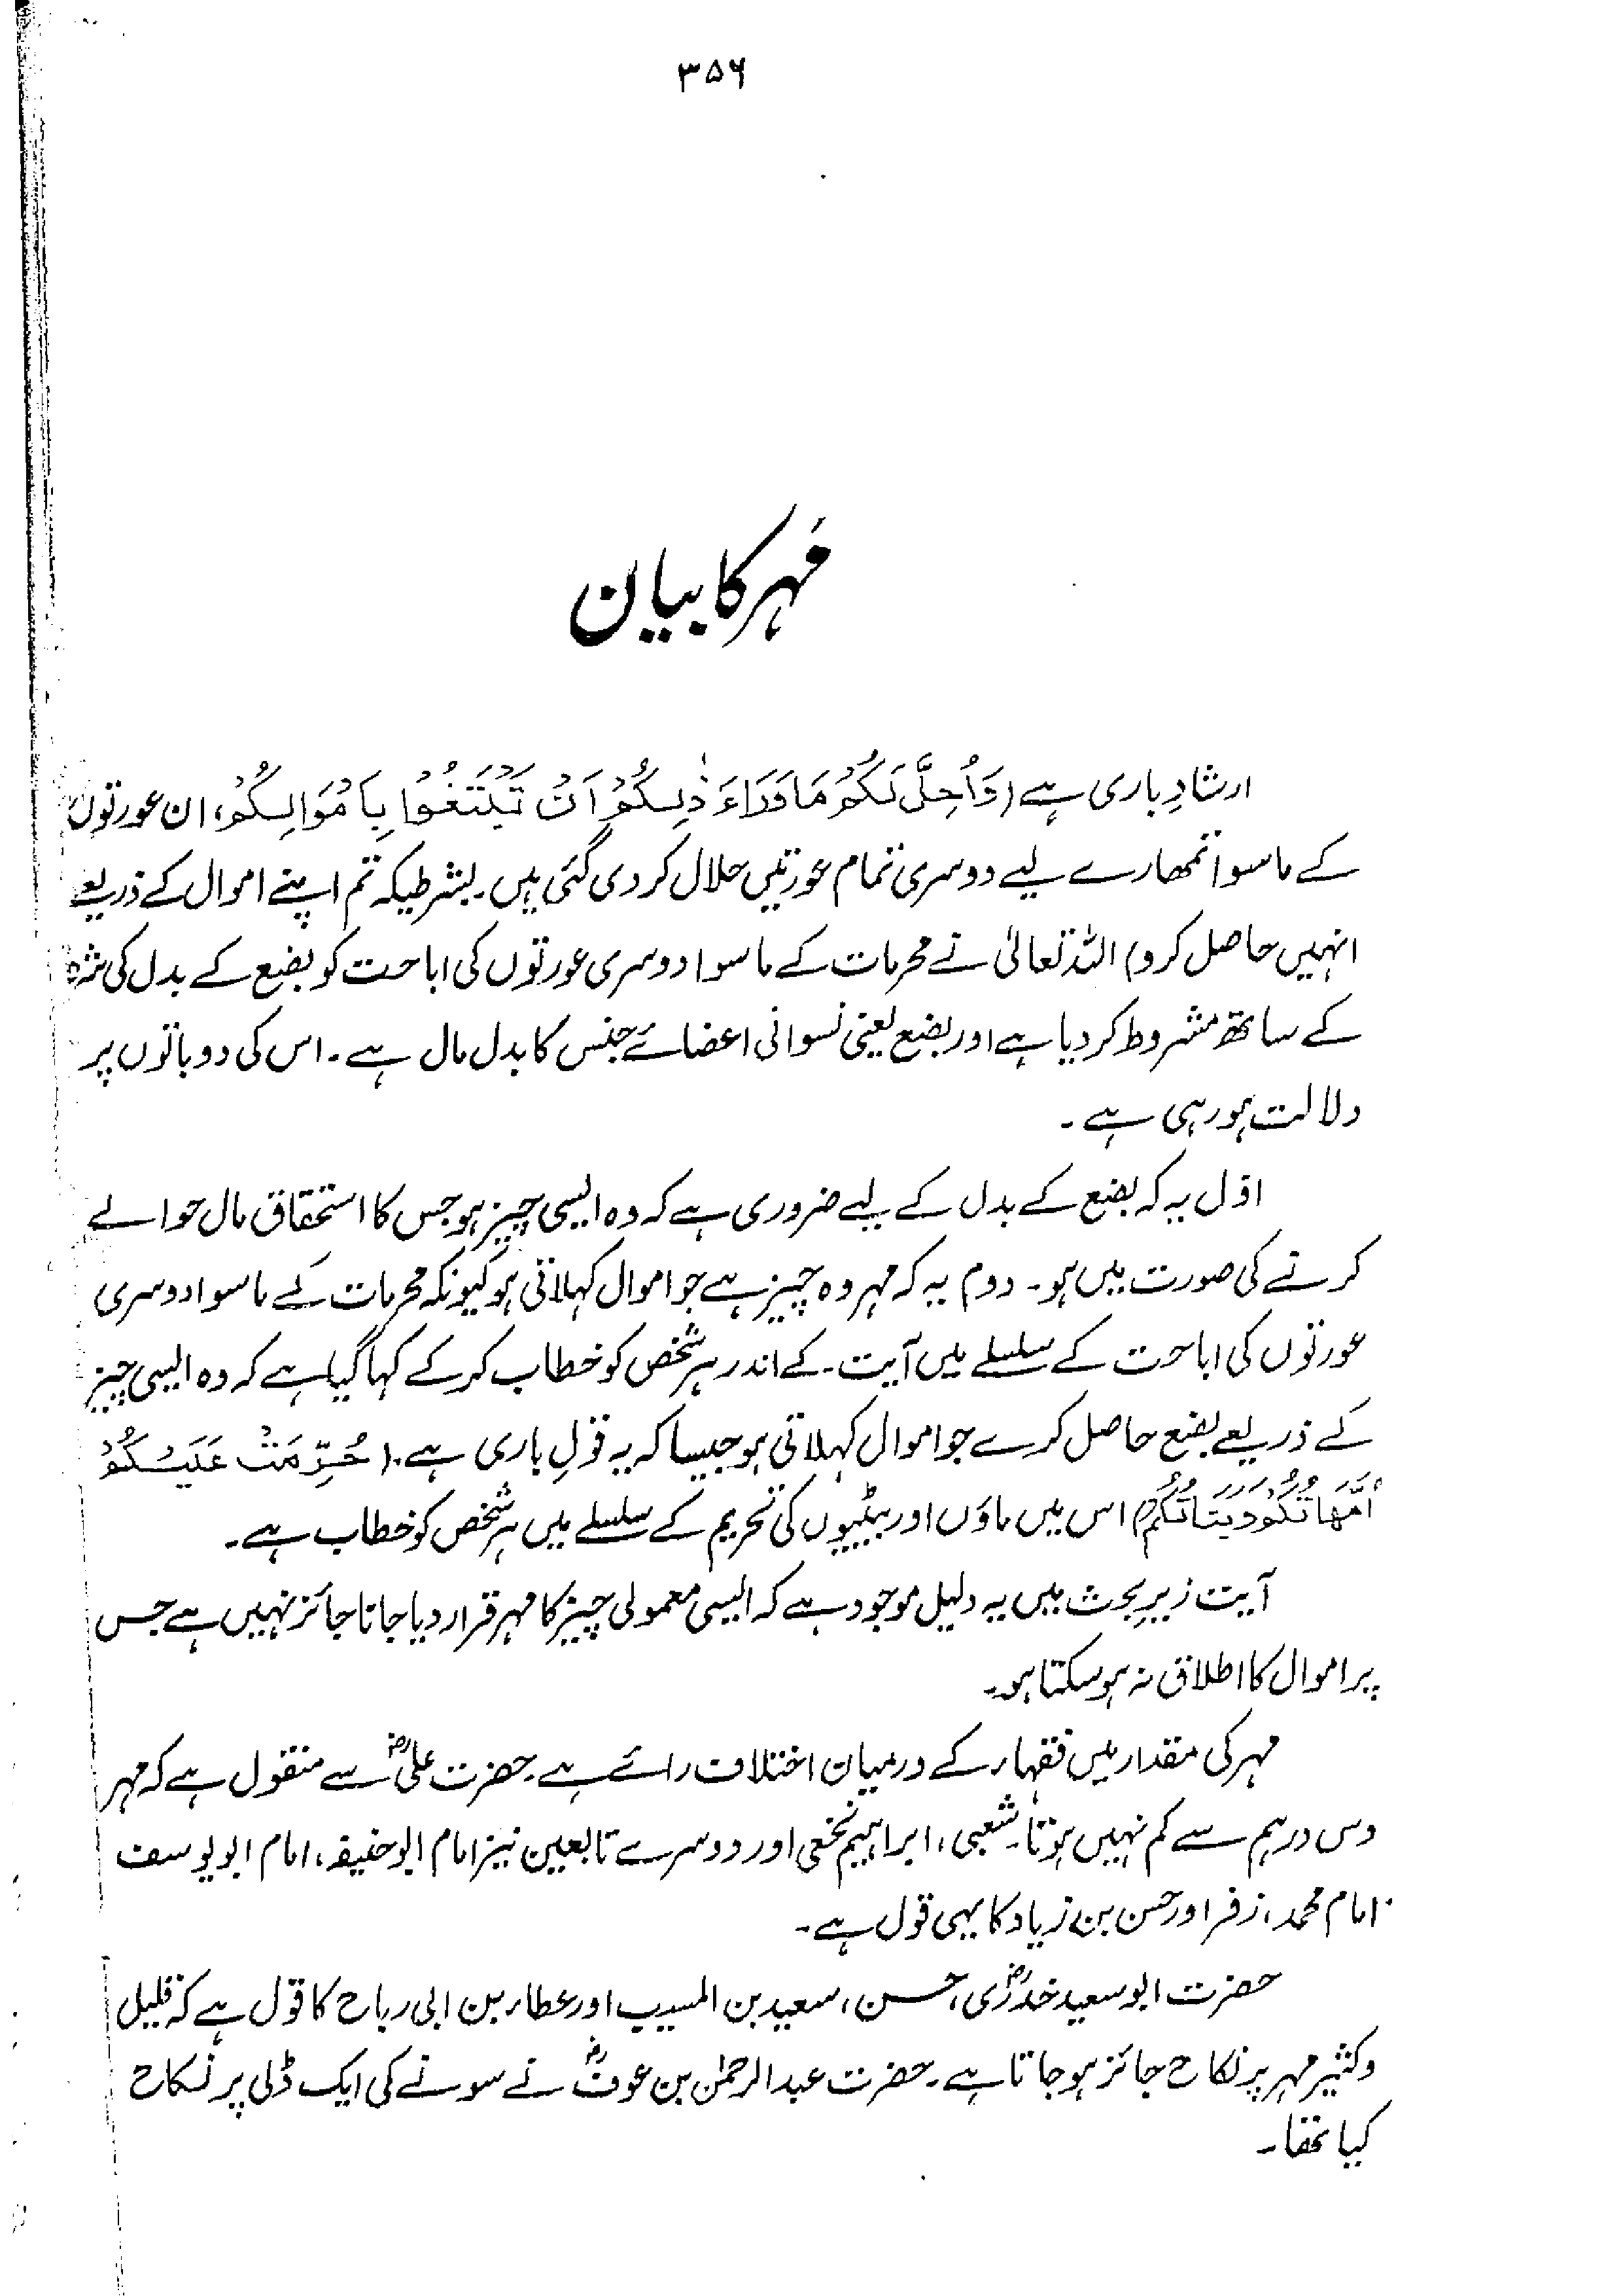 ۳۵۶
مَہر کا بیان
ارشادِ باری ہے (وَاُحِلَّ لَكُمْ مَا وَرَاءَ ذٰلِكُمْ اَنْ تَبْتَغُوْا بِاَمْوَالِكُمْ، ان عورتوں
کے ماسوا تمھارے لیے دوسری تمام عورتیں حلال کر دی گئی ہیں۔ بشرطیکہ تم اپنے اموال کے ذریعے
انہیں حاصل کرو) اللہ تعالیٰ نے محرمات کے ماسوا دوسری عورتوں کی اباحت کو بضع کے بدل کی
کے ساتھ مشروط کر دیا ہے اور بضع یعنی نسوانی اعضائے جنس کا بدل مال ہے۔ اس کی دو باتوں پر
دلالت ہو رہی ہے۔
اوّل یہ کہ بضع کے بدل کے لیے ضروری ہے کہ وہ ایسی چیز ہو جس کا استحقاق مال حوالے
کرنے کی صورت میں ہو۔ دوم یہ کہ مہر وہ چیز ہے جو اموال کہلاتی ہو کیونکہ محرمات کے ماسوا دوسری
عورتوں کی اباحت کے سلسلے میں آیت۔ کے اندر ہر شخص کو خطاب کر کے کہا گیا ہے کہ وہ ایسی چیز
کے ذریعے بضع حاصل کرے جو اموال کہلاتی ہو جیسا کہ یہ قولِ باری ہے۔ (حُرِّمَتْ عَلَيْكُمْ
اُمَّهَاتُكُمْ وَبَنَاتُكُمْ) اس میں ماؤں اور بیٹیوں کی تحریم کے سلسلے میں ہر شخص کو خطاب ہے۔
آیت زیرِ بحث میں یہ دلیل موجود ہے کہ ایسی معمولی چیز کا مہر قرار دیا جانا جائز نہیں ہے جس
پر اموال کا اطلاق نہ ہو سکتا ہو۔
مہر کی مقدار میں فقہاء کے درمیان اختلاف رائے ہے۔ حضرت علیؓ سے منقول ہے کہ مہر
دس درہم سے کم نہیں ہوتا۔ شعبی، ابراہیم نخعی اور دوسرے تابعین نیز امام ابو حنیفہ، امام ابو یوسف
امام محمد، زفر اور حسن بن زیاد کا یہی قول ہے۔
حضرت ابو سعید خدریؓ، حسن، سعید بن المسیب اور عطاء بن ابی رباح کا قول ہے کہ قلیل
و کثیر مہر پر نکاح جائز ہو جاتا ہے۔ حضرت عبدالرحمٰن بن عوفؓ نے سونے کی ایک ڈلی پر نکاح
کیا تھا۔